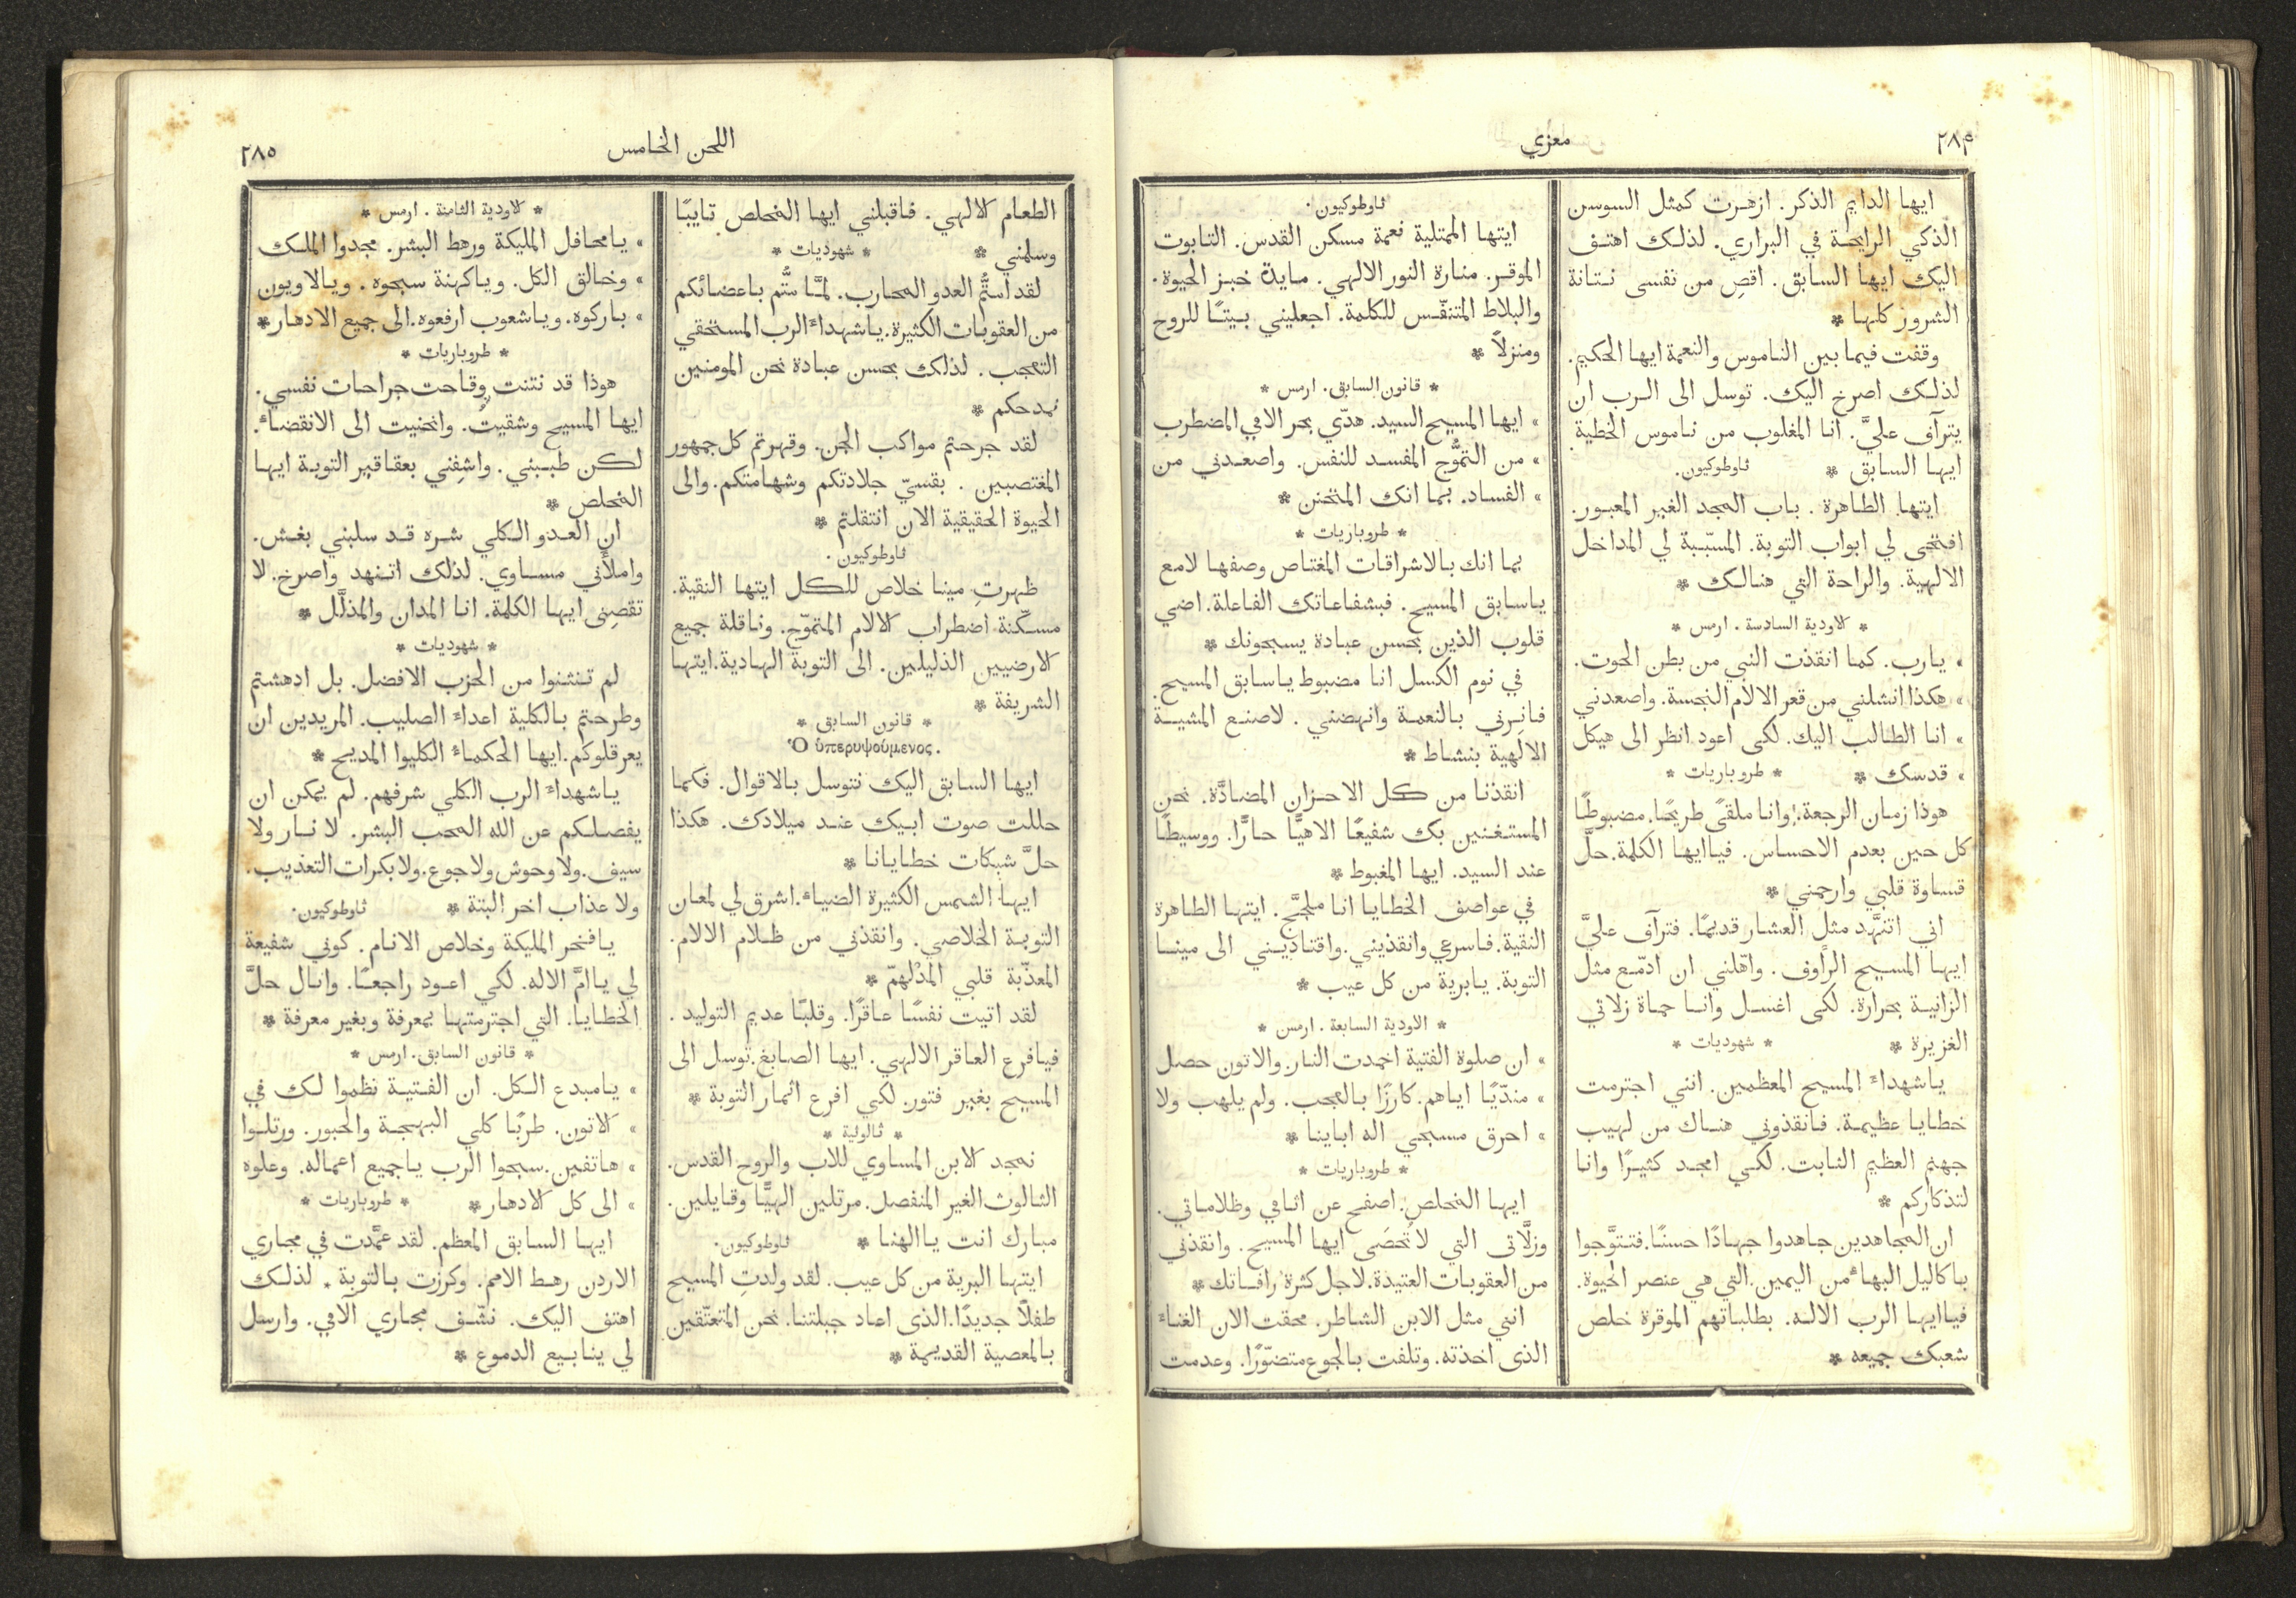 ٢٨۴
معزي
ايها الدايم الذكر. ازهرت كمثل السوسن
الذكي الرايحة في البراري. لذلك اهتف
اليك ايها السابق. اقصِ من نفسى نتانة
الشرور كلها *
وقفت فيما بين الناموس والنعمة ايها الحكيم.
لذلك اصرخ اليك. توسل الى الرب ان
يترآف عليَّ. انا المغلوب من ناموس الخطية
ايها السابق * ثاوطوكيون.
ايتها الطاهرة. باب المجد الغير المعبور.
افتحى لي ابواب التوبة. المسبّبة لي المداخل
الالهية. والراحة التي هنالك *
* الاودية السادسة. ارمس *
» يارب. كما انقذت النبي من بطن الحوت.
» هكذا انشلني من قعر الالام النجسة. واصعدني
» انا الطالب اليك. لكى اعود انظر الى هيكل
» قدسك * * طروباريات *
هوذا زمان الرجعة. وانا ملقىً طريحًا. مضبوطًا
كل حين بعدم الاحساس. فياايها الكلمة. حلَّ
قساوة قلبي وارحمني *
اني اتنهَّد مثل العشار قديمًا. فترآف عليَّ
ايها المسيح الرأوف. واهّلني ان ادمّع مثل
الزانية بحرارة. لكى اغسل وانا حماة زلاتي
الغزيرة * * شهوديات *
ياشهداء المسيح المعظمين. انني اجترمت
خطايا عظيمة. فانقذوني هناك من لهيب
جهنم العظيم الثابت. لكي امجد كثيرًا وانا
لتذكاركم *
ان المجاهدين جاهدوا جهادًا حسنًا. فتتوَّجوا
باكاليل البهاء من اليمين. التي هي عنصر الحيوة.
فياايها الرب الاله. بطلباتهم الموقرة خلص
شعبك جميعه *
ثاوطوكيون.
ايتها الممتلية نعمة مسكن القدس. التابوت
الموقر. منارة النور الالهي. مايدة خبز الحيوة.
والبلاط المتنفّس للكلمة. اجعليني بيتًا للروح
ومنزلاً *
* قانون السابق. ارمس *
» ايها المسيح السيد. هدّي بحر الامي المضطرب
» من التموُّج المفسد للنفس. واصعدني من
» الفساد. بما انك المتحنن *
* طروباريات *
بما انك بالاشراقات المغتاص وصفها لامع
ياسابق المسيح. فبشفاعاتك الفاعلة. اضي
قلوب الذين بحسن عبادة يسبحونك *
في نوم الكسل انا مضبوط ياسابق المسيح.
فانِرني بالنعمة وانهضني. لاصنع المشيئة
الالهية بنشاط *
انقذنا من كل الاحزان المضادَّة. نحن
المستغنين بك شفيعًا الاهيًّا حارًّا. ووسيطًا
عند السيد. ايها المغبوط *
في عواصف الخطايا انا ملجَّج. ايتها الطاهرة
النقية. فاسرعي وانقذيني. واقتاديني الى مينا
التوبة. يابرية من كل عيب *
* الاودية السابعة. ارمس *
» ان صلوة الفتية اخمدت النار. والاتون حصل
» مندّيًا اياهم. كارزًا بالعجب. ولم يلهب ولا
» احرق مسبحي اله اباينا *
* طروباريات *
ايها المخلص. اصفح عن اثامي وظلاماتي.
وزلَّاتى التي لاتُحصَى ايها المسيح. وانقذني
من العقوبات العتيدة. لاجل كثرة رافاتك *
انني مثل الابن الشاطر. محقت الان الغناء
الذى اخذته. وتلفت بالجوع متضوّرًا. وعدمت
اللحن الخامس
٢٨٥
الطعام الالهي. فاقبلني ايها المخلص تايبًا
وسلمني * * شهوديات *
لقد استُّم العدو المحارب. لمَّا ستُّم باعضائكم
من العقوبات الكثيرة. ياشهداء الرب المستحقي
التعجب. لذلك بحسن عبادة نحن المومنين
نمدحكم *
لقد جرحتم مواكب الجن. وقهرتم كل جمهور
المغتصبين. بقسيّ جلادتكم وشهامتكم. والى
الحيوة الحقيقية الان انتقلتم *
ثاوطوكيون.
ظهرتِ مينا خلاص للكل ايتها النقية.
مسكّنة اضطراب الالام المتموّج. وناقلة جميع
الارضيين الذليلين. الى التوبة الهادية. ايتها
الشريفة *
* قانون السابق *
Ὁ ὑπερυψούμενος.
ايها السابق اليك نتوسل بالاقوال. فكما
حللت صوت ابيك عند ميلادك. هكذا
حلَّ شبكات خطايانا *
ايها الشمس الكثيرة الضياء. اشرق لي لمعان
التوبة الخلاصي. وانقذني من ظلام الالام.
المعذّبة قلبي المدْلهمّ *
لقد اتيت نفسًا عاقرًا. وقلبًا عديم التوليد.
فيافرع العاقر الالهي. ايها الصابغ. توسل الى
المسيح بغير فتور. لكي افرع اثمار التوبة *
* ثالولية *
نمجد الابن المساوي للاب والروح القدس.
الثالوث الغير المنفصل. مرتلين الهيًّا وقايلين.
مبارك انت ياالهنا * ثاوطوكيون.
ايتها البرية من كل عيب. لقد ولدتِ المسيح
طفلاً جديدًا. الذى اعاد جبلتنا. نحن المتعتّقين
بالمعصية القديمة *
* الاودية الثامنة. ارمس *
» يامحافل المليكة ورهط البشر. مجدوا الملك
» وخالق الكل. وياكهنة سبحوه. ويالاويون
» باركوه. وياشعوب ارفعوه. الى جميع الادهار *
* طروباريات *
هوذا قد نتنت وقاحت جراحات نفسي.
ايها المسيح وشقيت. وانحنيت الى الانقضاء.
لكن طببني. واشفِني بعقاقير التوبة ايها
المخلص *
ان العدو الكلي شره قد سلبني بغش.
واملأني مساوي. لذلك اتنهد واصرخ. لا
تقصِنى ايها الكلمة. انا المدان والمذلَّل *
* شهوديات *
لم تنثنوا من الحزب الافضل. بل ادهشتم
وطرحتم بالكلية اعداء الصليب. المريدين ان
يعرقلوكم. ايها الحكماء الكليوا المديح *
ياشهداء الرب الكلي شرفهم. لم يمكن ان
يفصلكم عن الله المحب البشر. لا نار ولا
سيف. ولا وحوش ولا جوع. ولا بكرات التعذيب.
ولا عذاب اخر البتة * ثاوطوكيون.
يافخر المليكة وخلاص الانام. كوني شفيعة
لي ياامَّ الاله. لكي اعود راجعًا. وانال حلَّ
الخطايا. التي اجترمتها بمعرفة وبغير معرفة *
* قانون السابق. ارمس *
» يامبدع الكل. ان الفتية نظموا لك في
» الاتون. طربًا كلي البهجة والحبور. ورتلوا
» هاتفين. سبحوا الرب ياجميع اعماله. وعلوه
» الى كل الادهار * * طروباريات *
ايها السابق المعظم. لقد عمَّدت في مجاري
الاردن رهط الامم. وكرزت بالتوبة * لذلك
اهتف اليك. نشّف مجاري آلامي. وارسل
لي ينابيع الدموع *